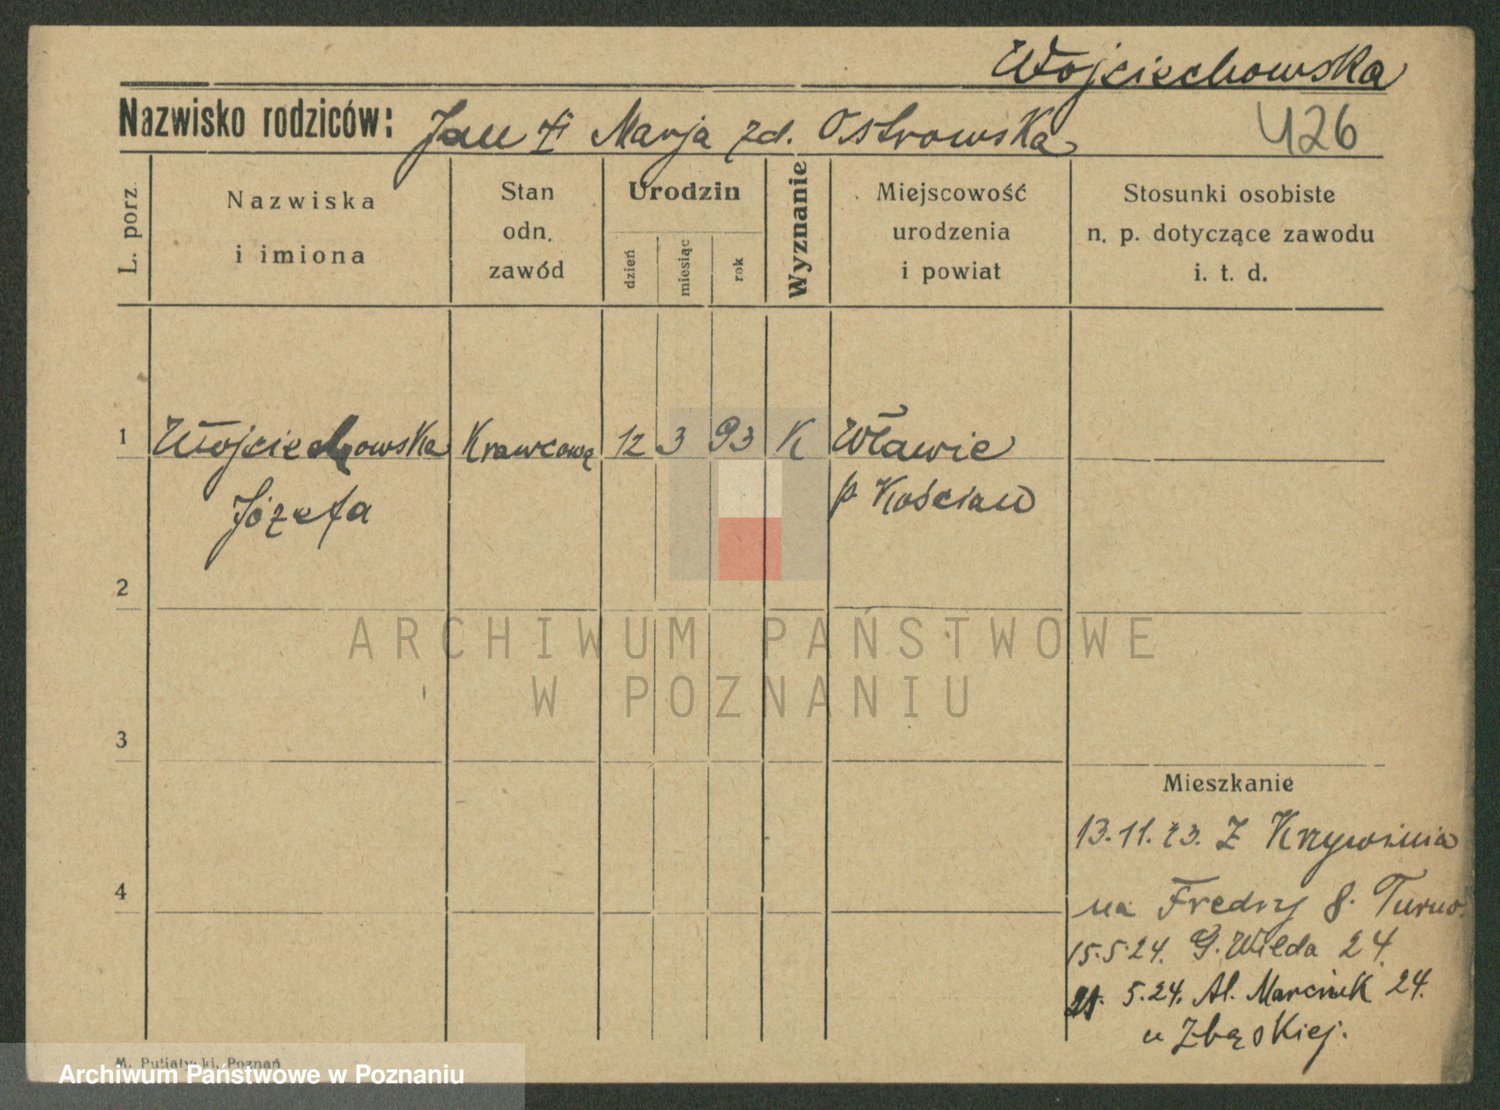 Wojciechowska
Nazwisko rodziców: Jan † i Marja zd. Ostrowska 426
L. porz.
Nazwiska
i imiona
Stan
odn.
zawód
Urodzin
dzień miesiąc rok
Wyznanie
Miejscowość
urodzenia
i powiat
Stosunki osobiste
n. p. dotyczące zawodu
i. t. d.
1 Wojciechowska Krawcową 12 3 93 K Wławie
Józefa p Kościan
2
ARCHIWUM PAŃSTWOWE
W POZNANIU
3
Mieszkanie
13.11.23. Z Krzywinia
4
na Fredry 8. Turno
15.5.24. G. Wilda 24.
21. 5.24. Al. Marcink 24.
u Zbąskiej.
M. Putiatycki, Poznań
Archiwum Państwowe w Poznaniu